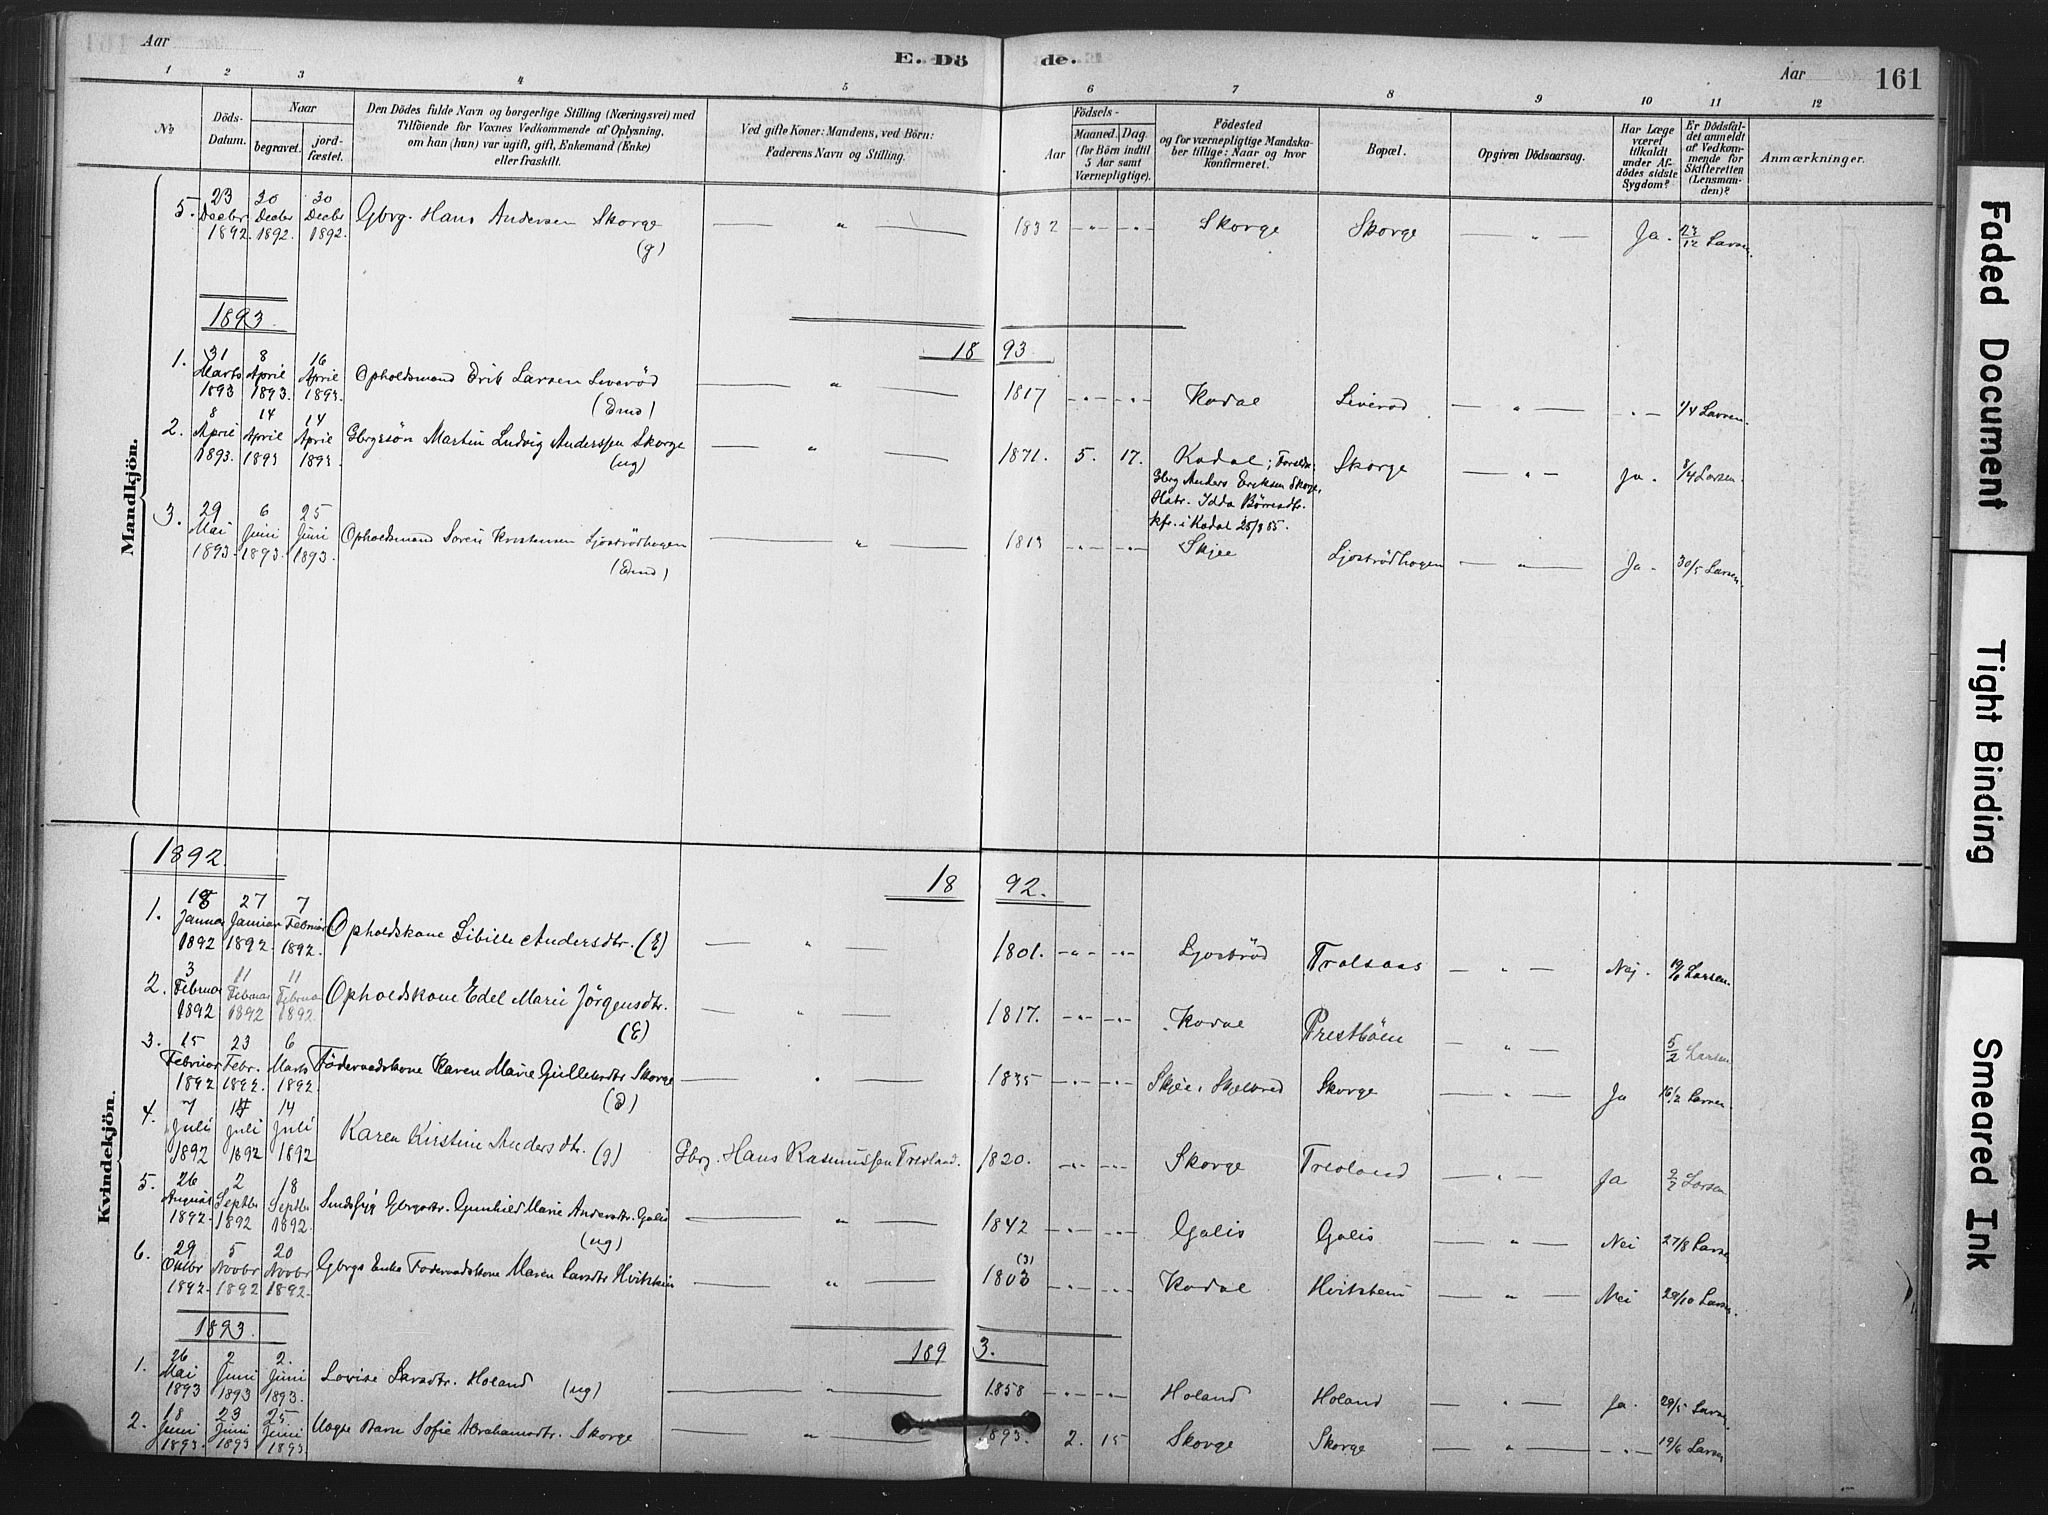 Aar
E. Dö de.
Aar
161
1 2 3 4 5 6 7 8 9 10 11 12
No
Döds-Datum.
Naar
begravet.
jordfæstet.
Den Dödes fulde Navn og borgerlige Stilling (Næringsvei) med
Tilföiende for Voxnes Vedkommende af Oplysning,
om han (hun) var ugift, gift, Enkemand (Enke)
eller fraskilt.
Ved gifte Koner: Mandens, ved Börn:
Faderens Navn og Stilling.
Födsels-
Aar
Maaned. Dag.
(for Börn indtil
5 Aar samt
Værnepligtige).
Födested
og for værnepligtige Mandskaber
tillige: Naar og hvor
konfirmeret.
Bopæl.
Opgiven Dödsaarsag.
Har Læge
været
tilkaldt
under Afdödes
sidste
Sygdom?
Er Dödsfaldet
anmeldt
af Vedkommende
for
Skifteretten
(Lensmanden)?
Anmærkninger.
Mandkjön.
5. 23 Decbr 1892. 30 Decbr 1892. 30 Decbr 1892. Gbrg. Hans Andersen Skorge (g) — " — 1832 -"- -"- Skorge Skorge — " — Ja. 23/12 Larsen.
1893.
18 93.
1. 31 Marts 1893 8 April 1893. 16 April 1893. Opholdsmand Erik Larsen Liverød (Emd) — " — 1817 -"- -"- Kodal Liverød — " — -"- 1/4 Larsen.
2. 8 April 1893. 14 April 1893 14 April 1893. Gbrgrsøn Martin Ludvig Anderssen Skorge (ug) — " — 1871. 5. 17. Kodal; Forældr: Gbrg Anders Eriksen Skorge, Hstr. Idda Börresdtr. kfr. i Kodal 25/9 85. Skorge — " — Ja. 8/4 Larsen.
3. 29 Mai 1893. 6 Juni 1893. 25 Juni 1893. Opholdsmand Sören Kristensen Ljoströdhogen (Emd) — " — 1813 -"- -"- Skjee Ljoströdhogen — " — Ja. 30/5 Larsen.
Kvindekjön.
1892.
18 92.
1. 18 Januar 1892 27 Januar 1892. 7 Februar 1892. Opholdskone Sibille Andersdtr. (E) — " — 1801. -"- -"- Ljoströd Trolsaas — " — Nej. Larsen.
2. 3 Februar 1892 11 Februar 1892 11 Februar 1892. Opholdskone Edel Marie Jörgensdtr. (E) — " — 1817. -"- -"- Kodal Prestböen — " — 5/2 Larsen
3. 15 Februar 1892 23 Febr. 1892. 6 Marts 1892. Föderaadskone Karen Marie Gulleksdtr Skorge — " — 1835 -"- -"- Skjee, Skjelbred Skorge — " — Ja 16/2 Larsen.
4. 7 Juli 1892 14 Juli 1892 14 Juli 1892 Karen Kirstine Andersdtr. (g) Gbrg. Hans Rasmussen Trevland. 1820. -"- -"- Skorge Trevland — " — Ja Larsen
5. 26 August 1892. 2 Septbr 1892 18 Septbr 1892. Sindssyg Gbrgrdtr. Gunhild Marie Andersdtr. Golis (ug) — " — 1842 -"- -"- Golis Golis — " — Nei 27/8 Larsen
6. 29 Oktbr 1892. 5 Novbr 1892 20 Novbr 1892. Gbrgs Enke Föderaadskone Maren Larsdtr Hvitstein — " — 1803 (3) -"- -"- Kodal Hvitstein — " — Nei 29/10 Larsen.
1893.
189 3.
1. 26 Mai 1893 2 Juni 1893 2. Juni 1893. Lovise Larsdtr. Holand (ug) — " — 1858 -"- -"- Holand Holand — " — Ja. 29/5 Larsen
2. 18 Juni 1893. 23 Juni 1893 25 Juni 1893 Uægte Barn Sofie Abrahamsdtr. Skorge — " — 1893. 2. 15 Skorge Skorge — " — -"- 19/6 Larsen
Faded Document
Tight Binding
Smeared Ink